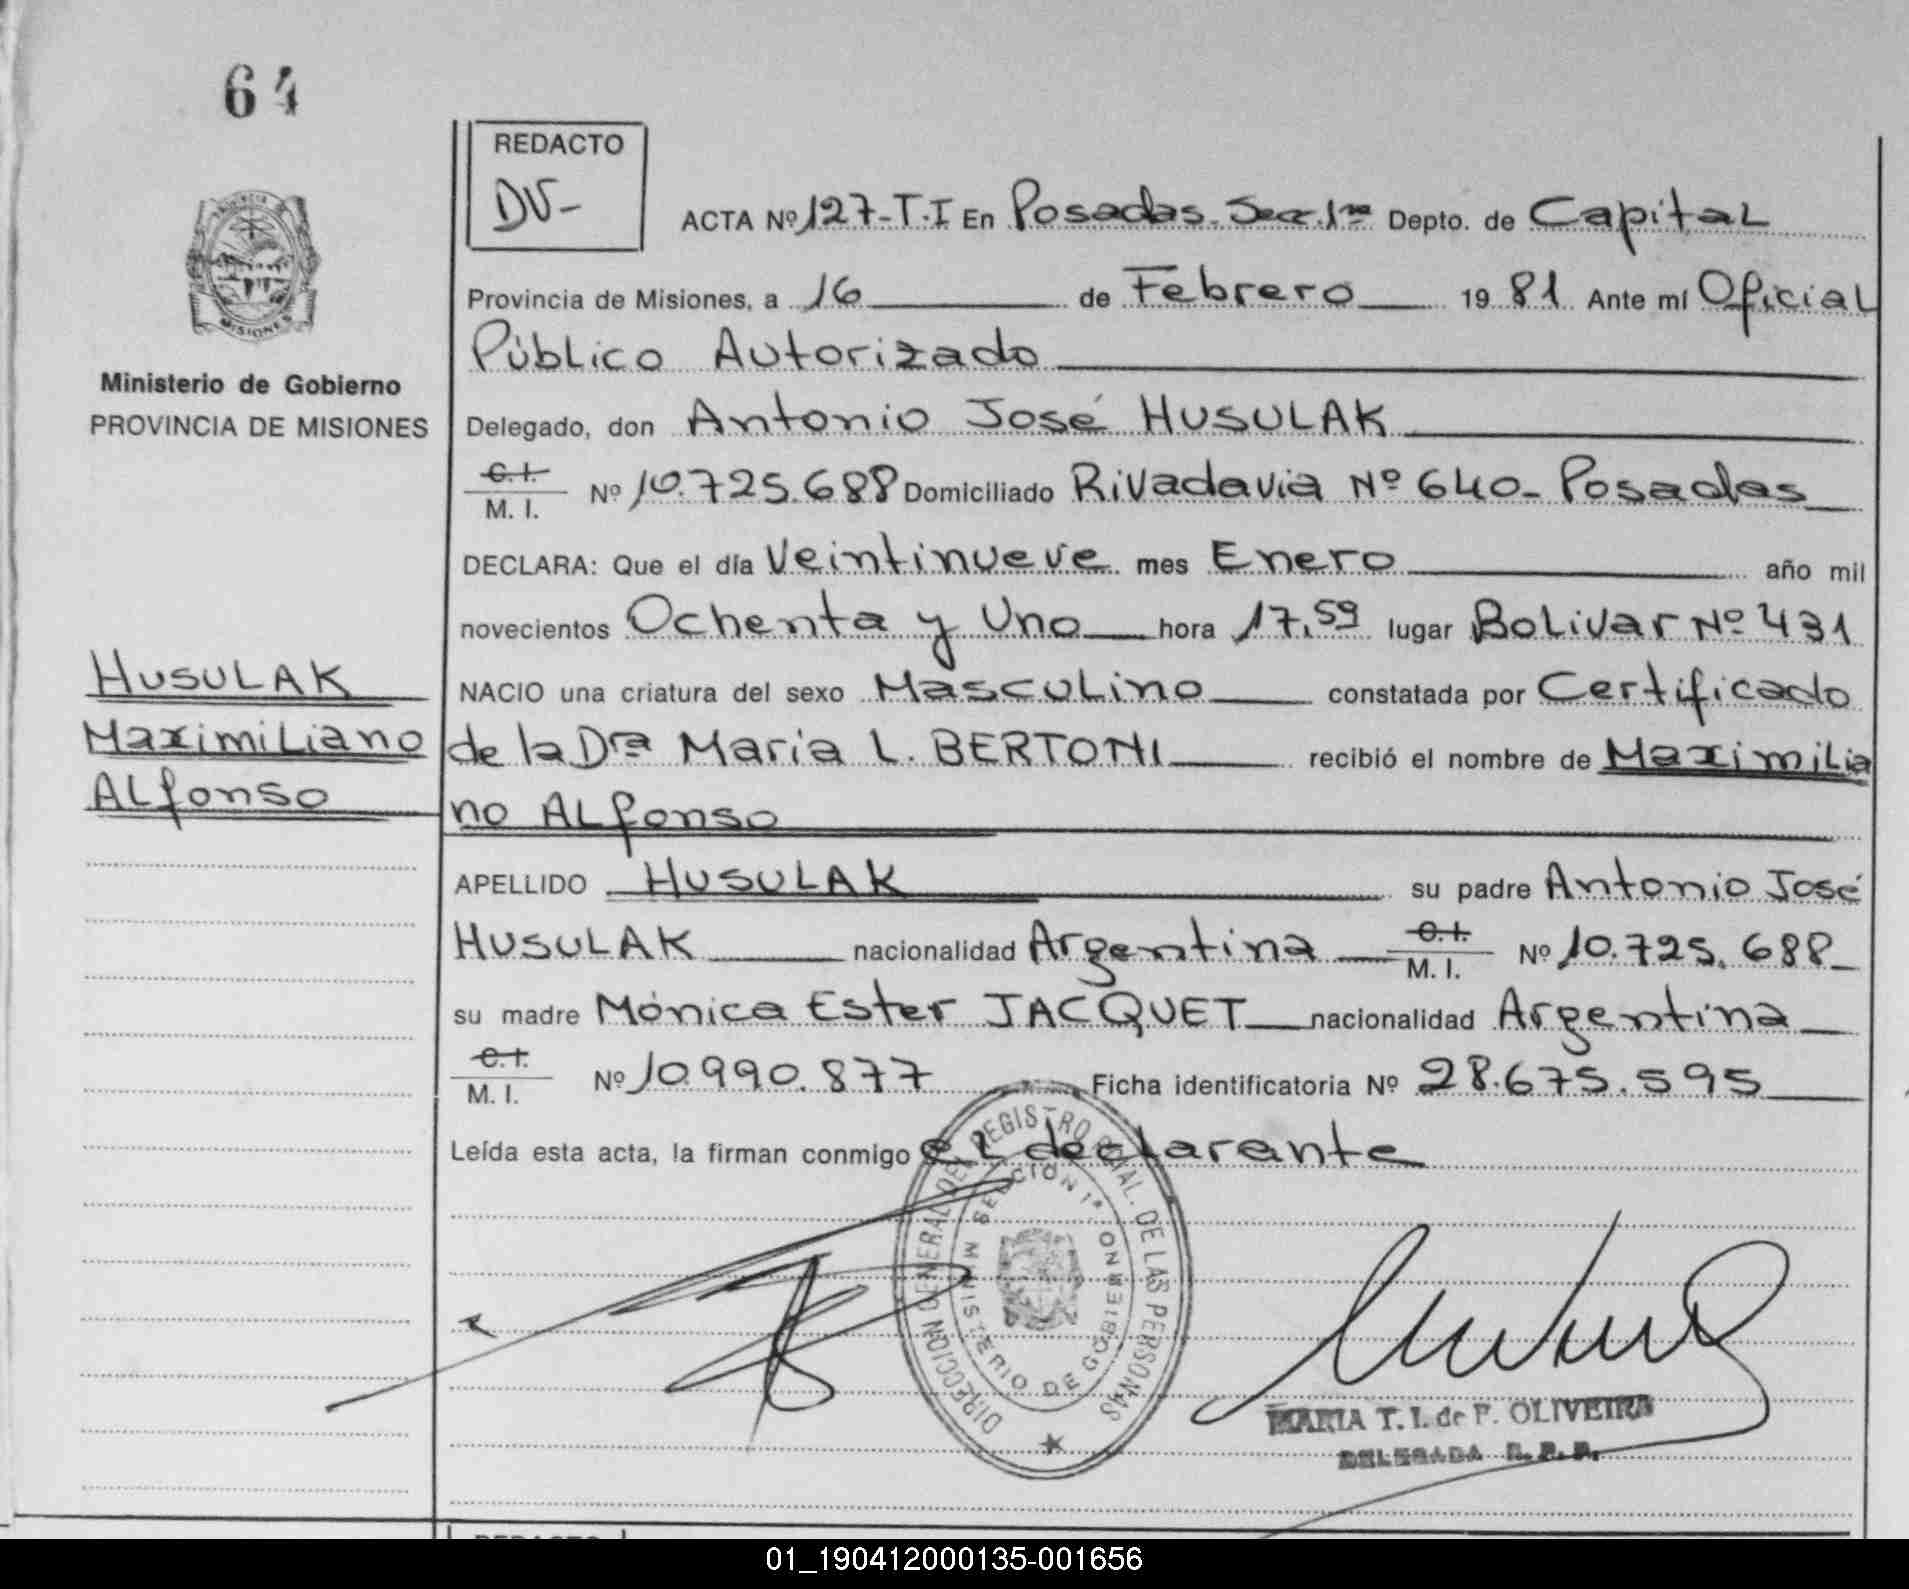 64
REDACTO
DV-
ACTA Nº 127-T.I En Posadas. Secc. 1ra Depto. de Capital
Provincia de Misiones, a 16 de Febrero 19 81 Ante mí Oficial
Público Autorizado
Ministerio de Gobierno
PROVINCIA DE MISIONES
Delegado, don Antonio José HUSULAK
C. I.
M. I. Nº 10.725.688 Domiciliado Rivadavia Nº 640- Posadas
DECLARA: Que el día Veintinueve mes Enero año mil
novecientos Ochenta y Uno hora 17,59 lugar Bolivar Nº 431
HUSULAK
Maximiliano
Alfonso
NACIO una criatura del sexo Masculino constatada por Certificado
de la Dra Maria L. BERTONI recibió el nombre de Maximilia
no Alfonso
APELLIDO HUSULAK su padre Antonio José
HUSULAK nacionalidad Argentina C. I.
M. I. Nº 10.725.688
su madre Mónica Ester JACQUET nacionalidad Argentina
C. I.
M. I. Nº 10.990.877 Ficha identificatoria Nº 28.675.595
Leída esta acta, la firman conmigo el declarante
DIRECCION GENERAL DEL REGISTRO PCIAL. DE LAS PERSONAS
SECCION 1ª
MINISTERIO DE GOBIERNO
MARIA T. I. de F. OLIVEIRA
DELEGADA R. P. P.
MISIONES
REDACTO
01_190412000135-001656